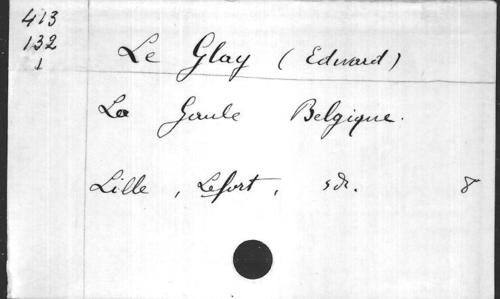 413
132
1
Le Glay (Edward)
La Gaule Belgique.
Lille, Lefort, sd. 8